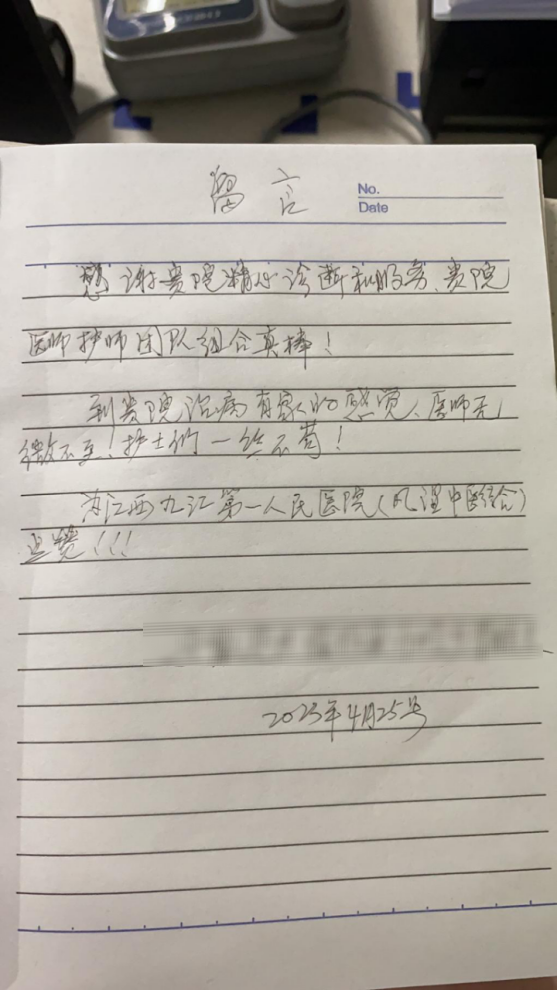 留言
No.
Date
感谢贵院精心诊断和服务、贵院
医师护师团队组合真棒!
到贵院治病有家的感觉、医师无
微不至!护士们一丝不苟!
为江西九江第一人民医院(风湿中医结合)
点赞!!!
2023年4月25号